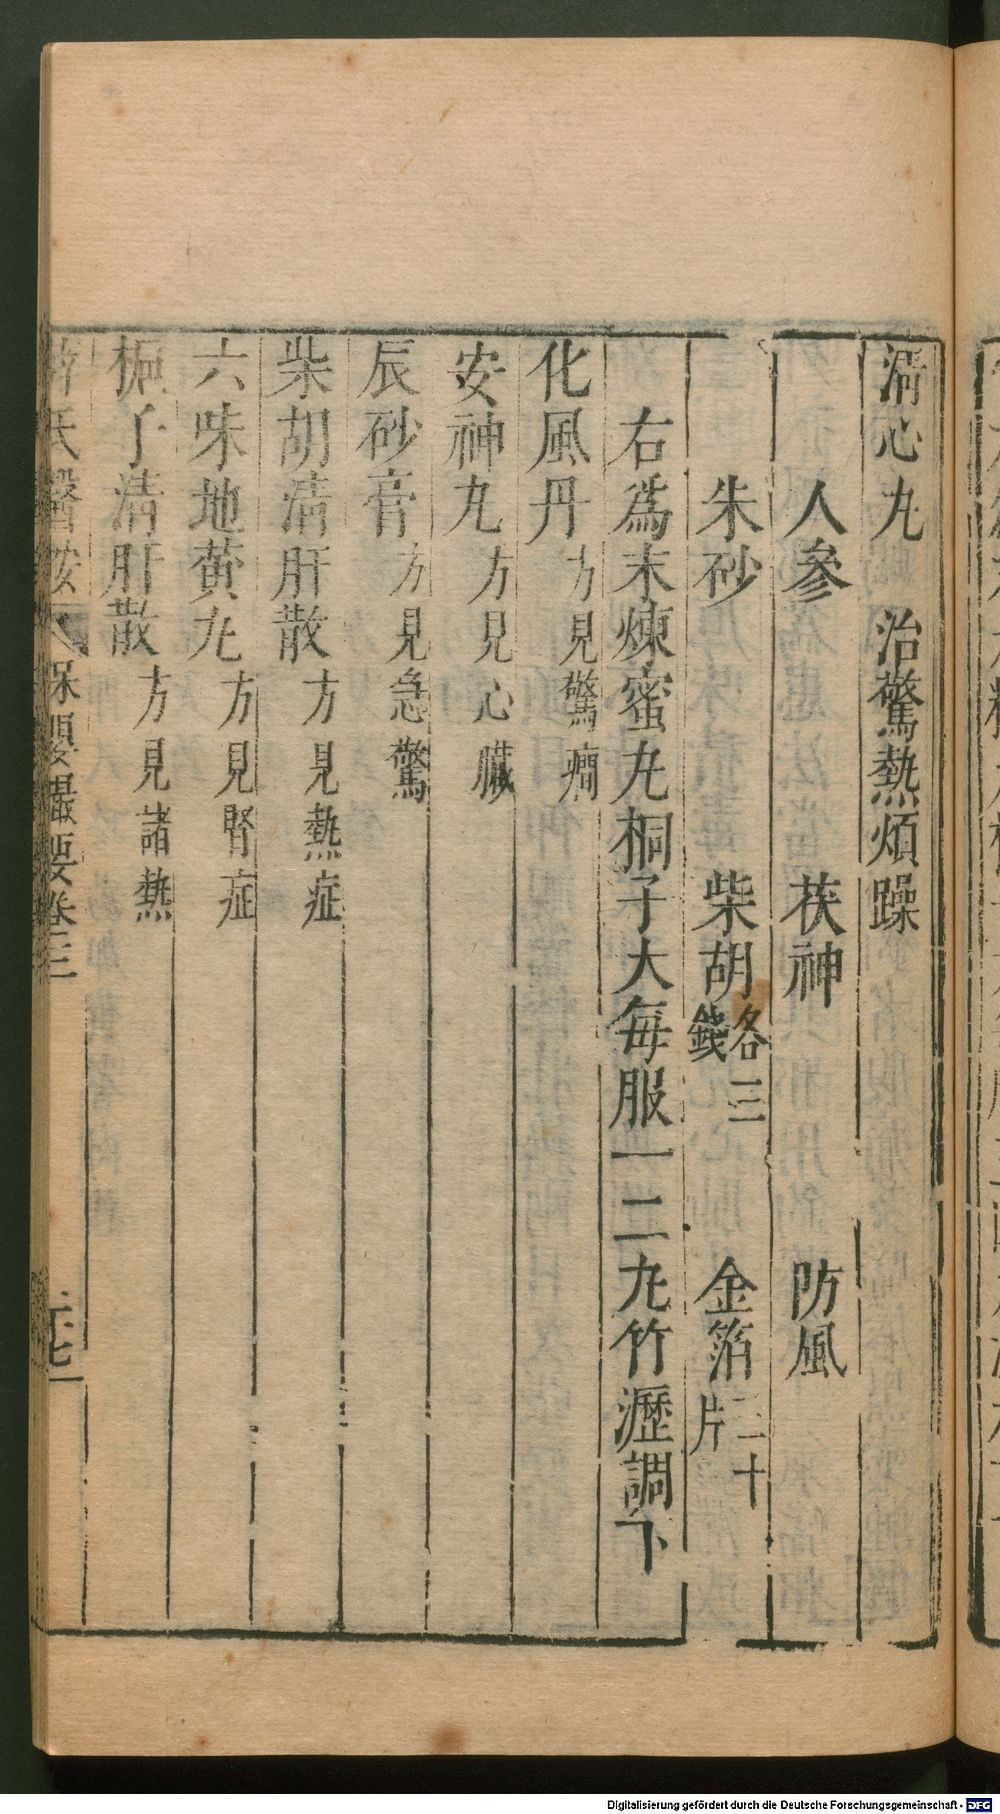 清心丸　治驚熱煩躁
人參　茯神　防風
朱砂　柴胡各三錢　金箔二十片
右為末煉蜜丸桐子大每服一二丸竹瀝調下
化風丹方見驚癇
安神丸方見心臟
辰砂膏方見急驚
柴胡清肝散方見熱症
六味地黃丸方見腎症
梔子清肝散方見諸熱
薛氏醫按　保嬰撮要卷三
Digitalisierung gefördert durch die Deutsche Forschungsgemeinschaft - DFG